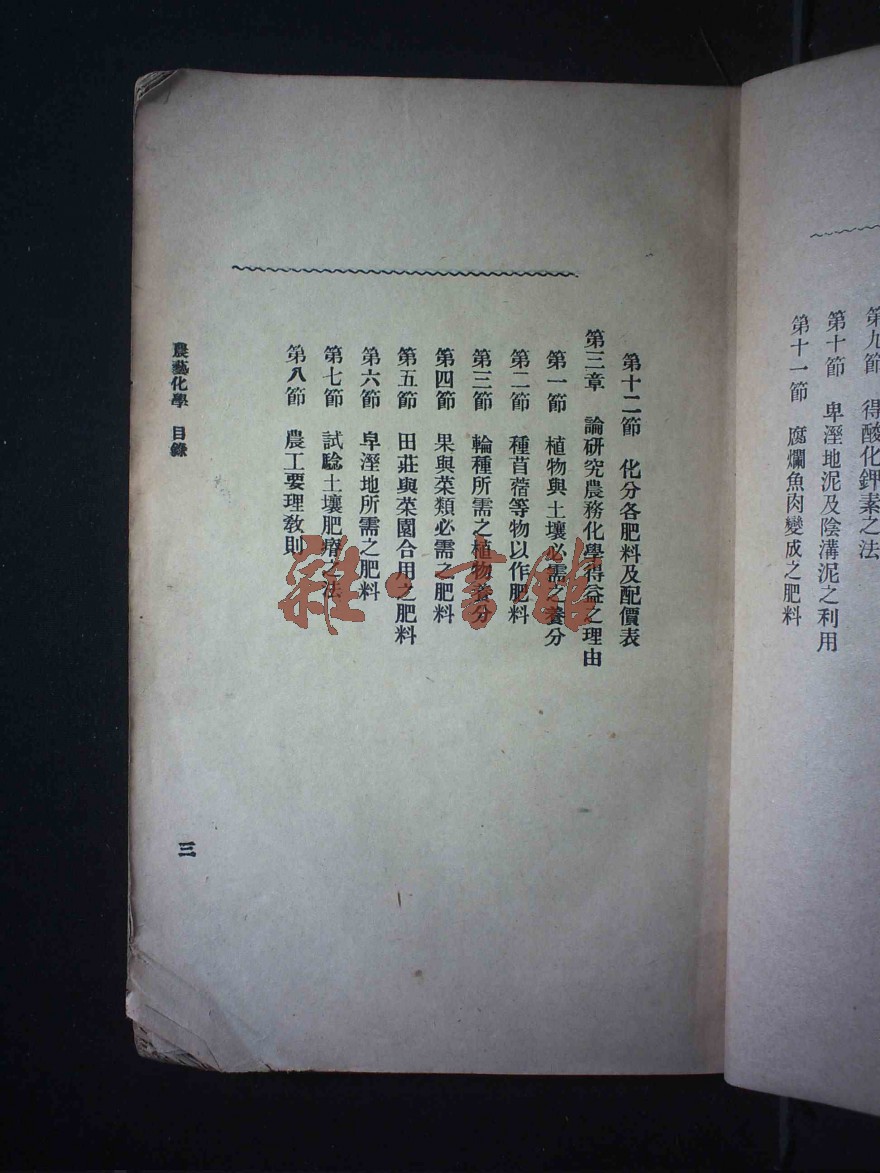 第九節　得酸化鉀素之法
第十節　卑溼地泥及陰溝泥之利用
第十一節　腐爛魚肉變成之肥料
第十二節　化分各肥料及配價表
第三章　論研究農務化學得益之理由
第一節　植物與土壤必需之養分
第二節　種苜蓿等物以作肥料
第三節　輪種所需之植物養分
第四節　果與菜類必需之肥料
第五節　田莊與菜園合用之肥料
第六節　卑溼地所需之肥料
第七節　試驗土壤肥瘠之法
第八節　農工要理教則
農藝化學　目錄
三
雜·書館